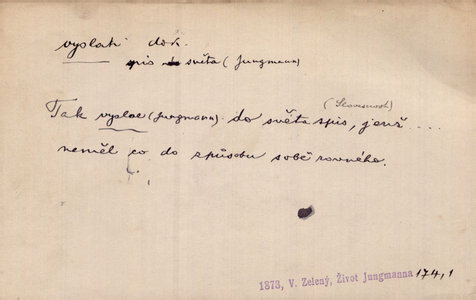 vyslati dok.
spis do světa (Jungmann)
(Slovesnost)
Tak vyslal (Jungmann) do světa spis, jenž ....
neměl co do způsobu sobě rovného.
1873, V. Zelený, Život Jungmanna 174,1